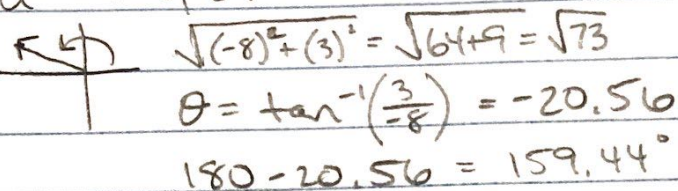 √(-8)²+(3)² = √64+9 = √73
θ = tan⁻¹(3/-8) = -20.56
180-20.56 = 159.44°